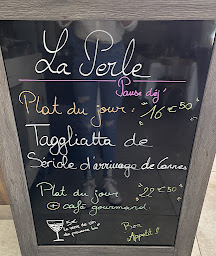 La Perle
Pause déj'
Plat du jour : 16€50
Taggliatta de
Sériole d'arrivage de Cannes
Plat du jour 22€50
+ café gourmand.
5€
le verre de vin
Bon
Appétit !